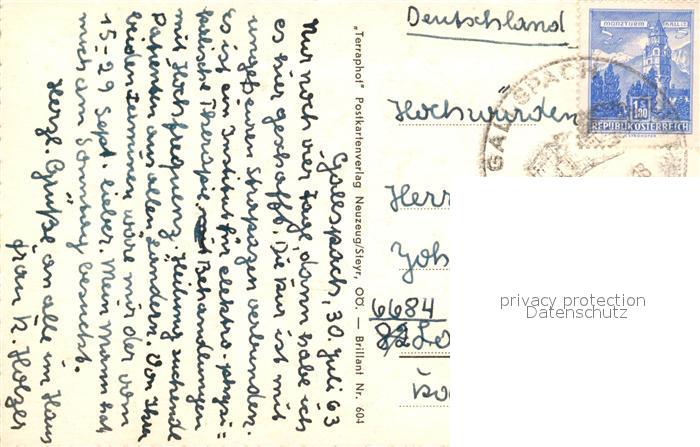 Gallspach, 30. Juli 63
Nur noch vier Tage, dann habe ich
es hier geschafft. Die Kur ist mit
ungeheuren Strapazen verbunden.
Es ist ein Institut für elektro-physi=
kalische Therapie. Behandlungen
mit Hochfrequenz. Heilung suchende
Patienten aus allen Ländern. Von Ihren
beiden Terminen wäre mir der vom
15-29 Sept. lieber. Mein Mann hat
mich am Sonntag besucht.
Herzl. Grüße an alle im Haus
Frau K. Holzer
„Terraphot" Postkartenverlag Neuzeug/Steyr, OÖ. — Brillant Nr. 604
Deutschland
MÜNZTURM HALL i.T.
S 1.80
REPUBLIK ÖSTERREICH
GALLSPACH
Hochwürden
Herr
Joh
6684
82
privacy protection
Datenschutz